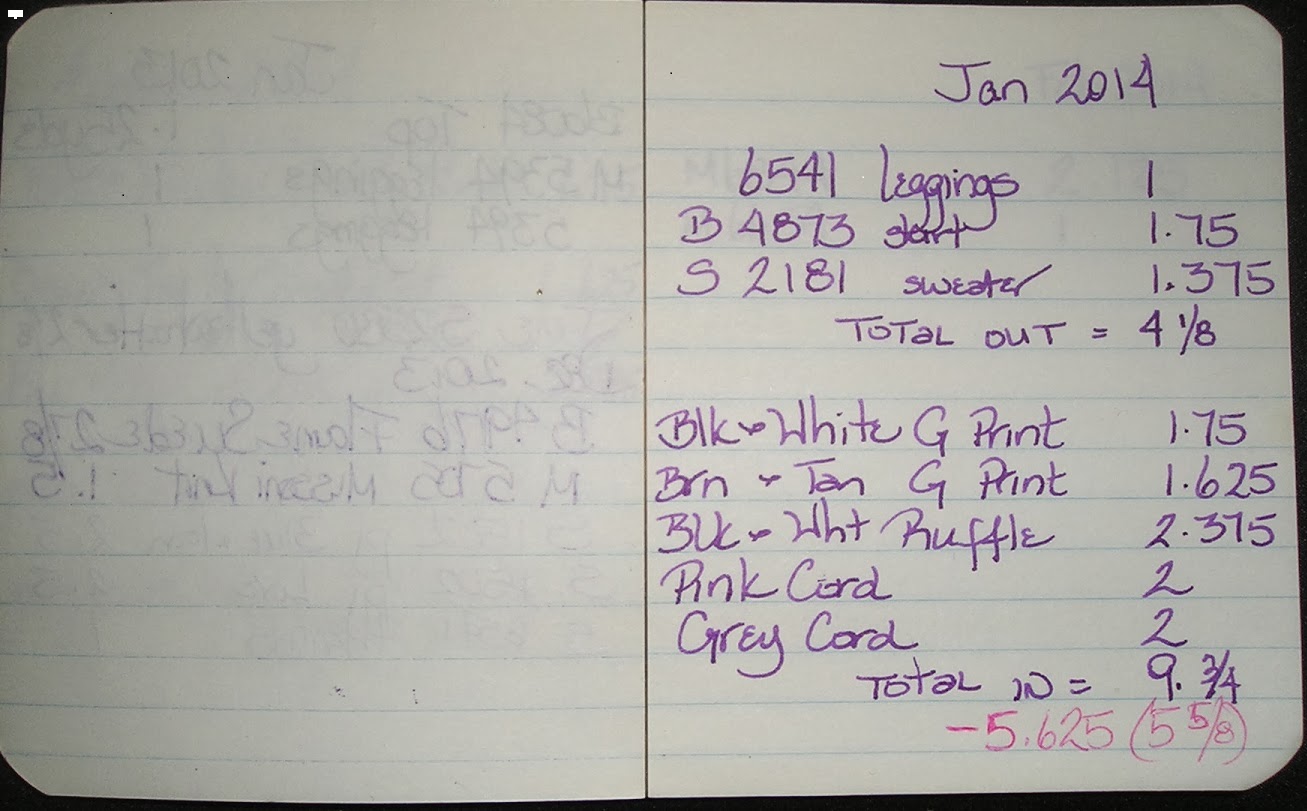 Jan 2014
6541 leggings 1
B 4873 skirt 1.75
S 2181 sweater 1.375
TOTAL OUT = 4 1/8
Blk & White G Print 1.75
Brn & Tan G Print 1.625
Blk & Wht Ruffle 2.375
Pink Cord 2
Grey Cord 2
TOTAL IN = 9. 3/4
-5.625 (5 5/8)